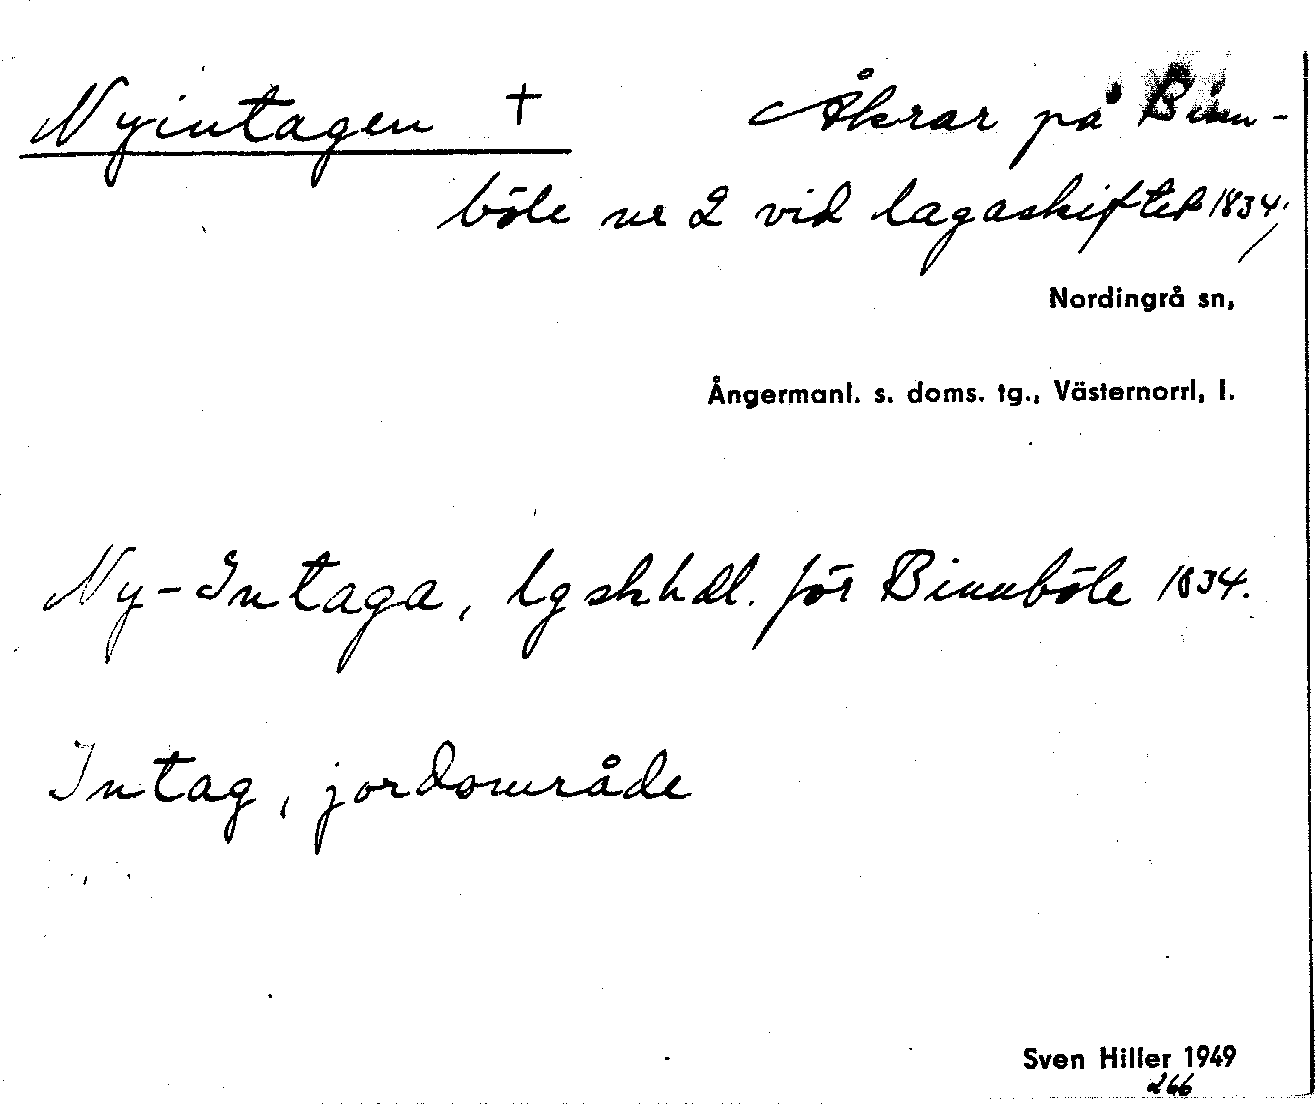 Nyintagen † Åkrar på Binn-
böle nr 2 vid lagaskiftet 1834,
Nordingrå sn,
Ångermanl. s. doms. tg., Västernorrl, l.
Ny-Intaga, lgskhdl. för Binnböle 1834.
Intag, jordområde
Sven Hiller 1949
266